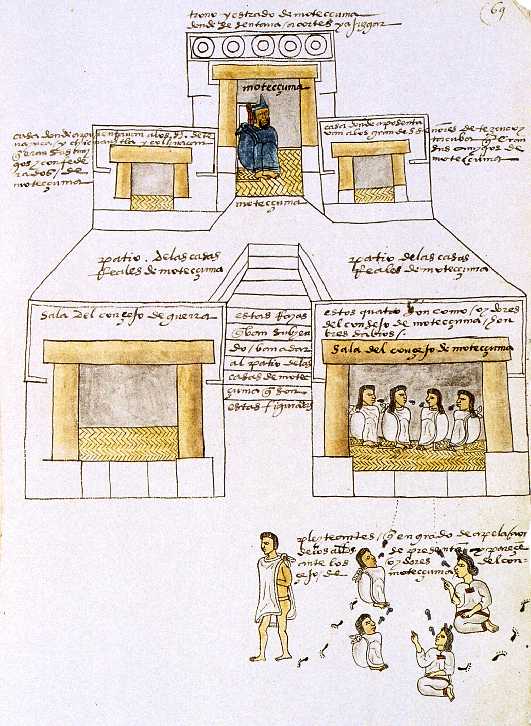 69
trono y estrado de motecçuma
donde se sentava a cortes y a juzgar
motecçuma
casa donde aposentavan a los s.s. de tena
yuca, y chicnauhtla y colhuacan
q eran sus ami
gos, y confede
rados, de
motecçuma
casa donde aposenta
van a los grandes señores de tezcuco
y tacuba q eran
sus amigos de
motecçuma
motecçuma
patio . de las casas
Reales de motecçuma
patio de las casas
Reales de motecçuma
Sala Del consejo de guerra
estas Rayas
q van subyen
do, van a dar
al patio de las
casas de motec
çuma q son
estas figuradas
estos quatro son como oydores
del consejo de motecçuma, hon
bres sabios
Sala del consejo de motecçuma
pleyteantes, q en grado de apelaçion
de los alcaldes se presentan y pareçe
ante los oydores del con
sejo de motecçuma